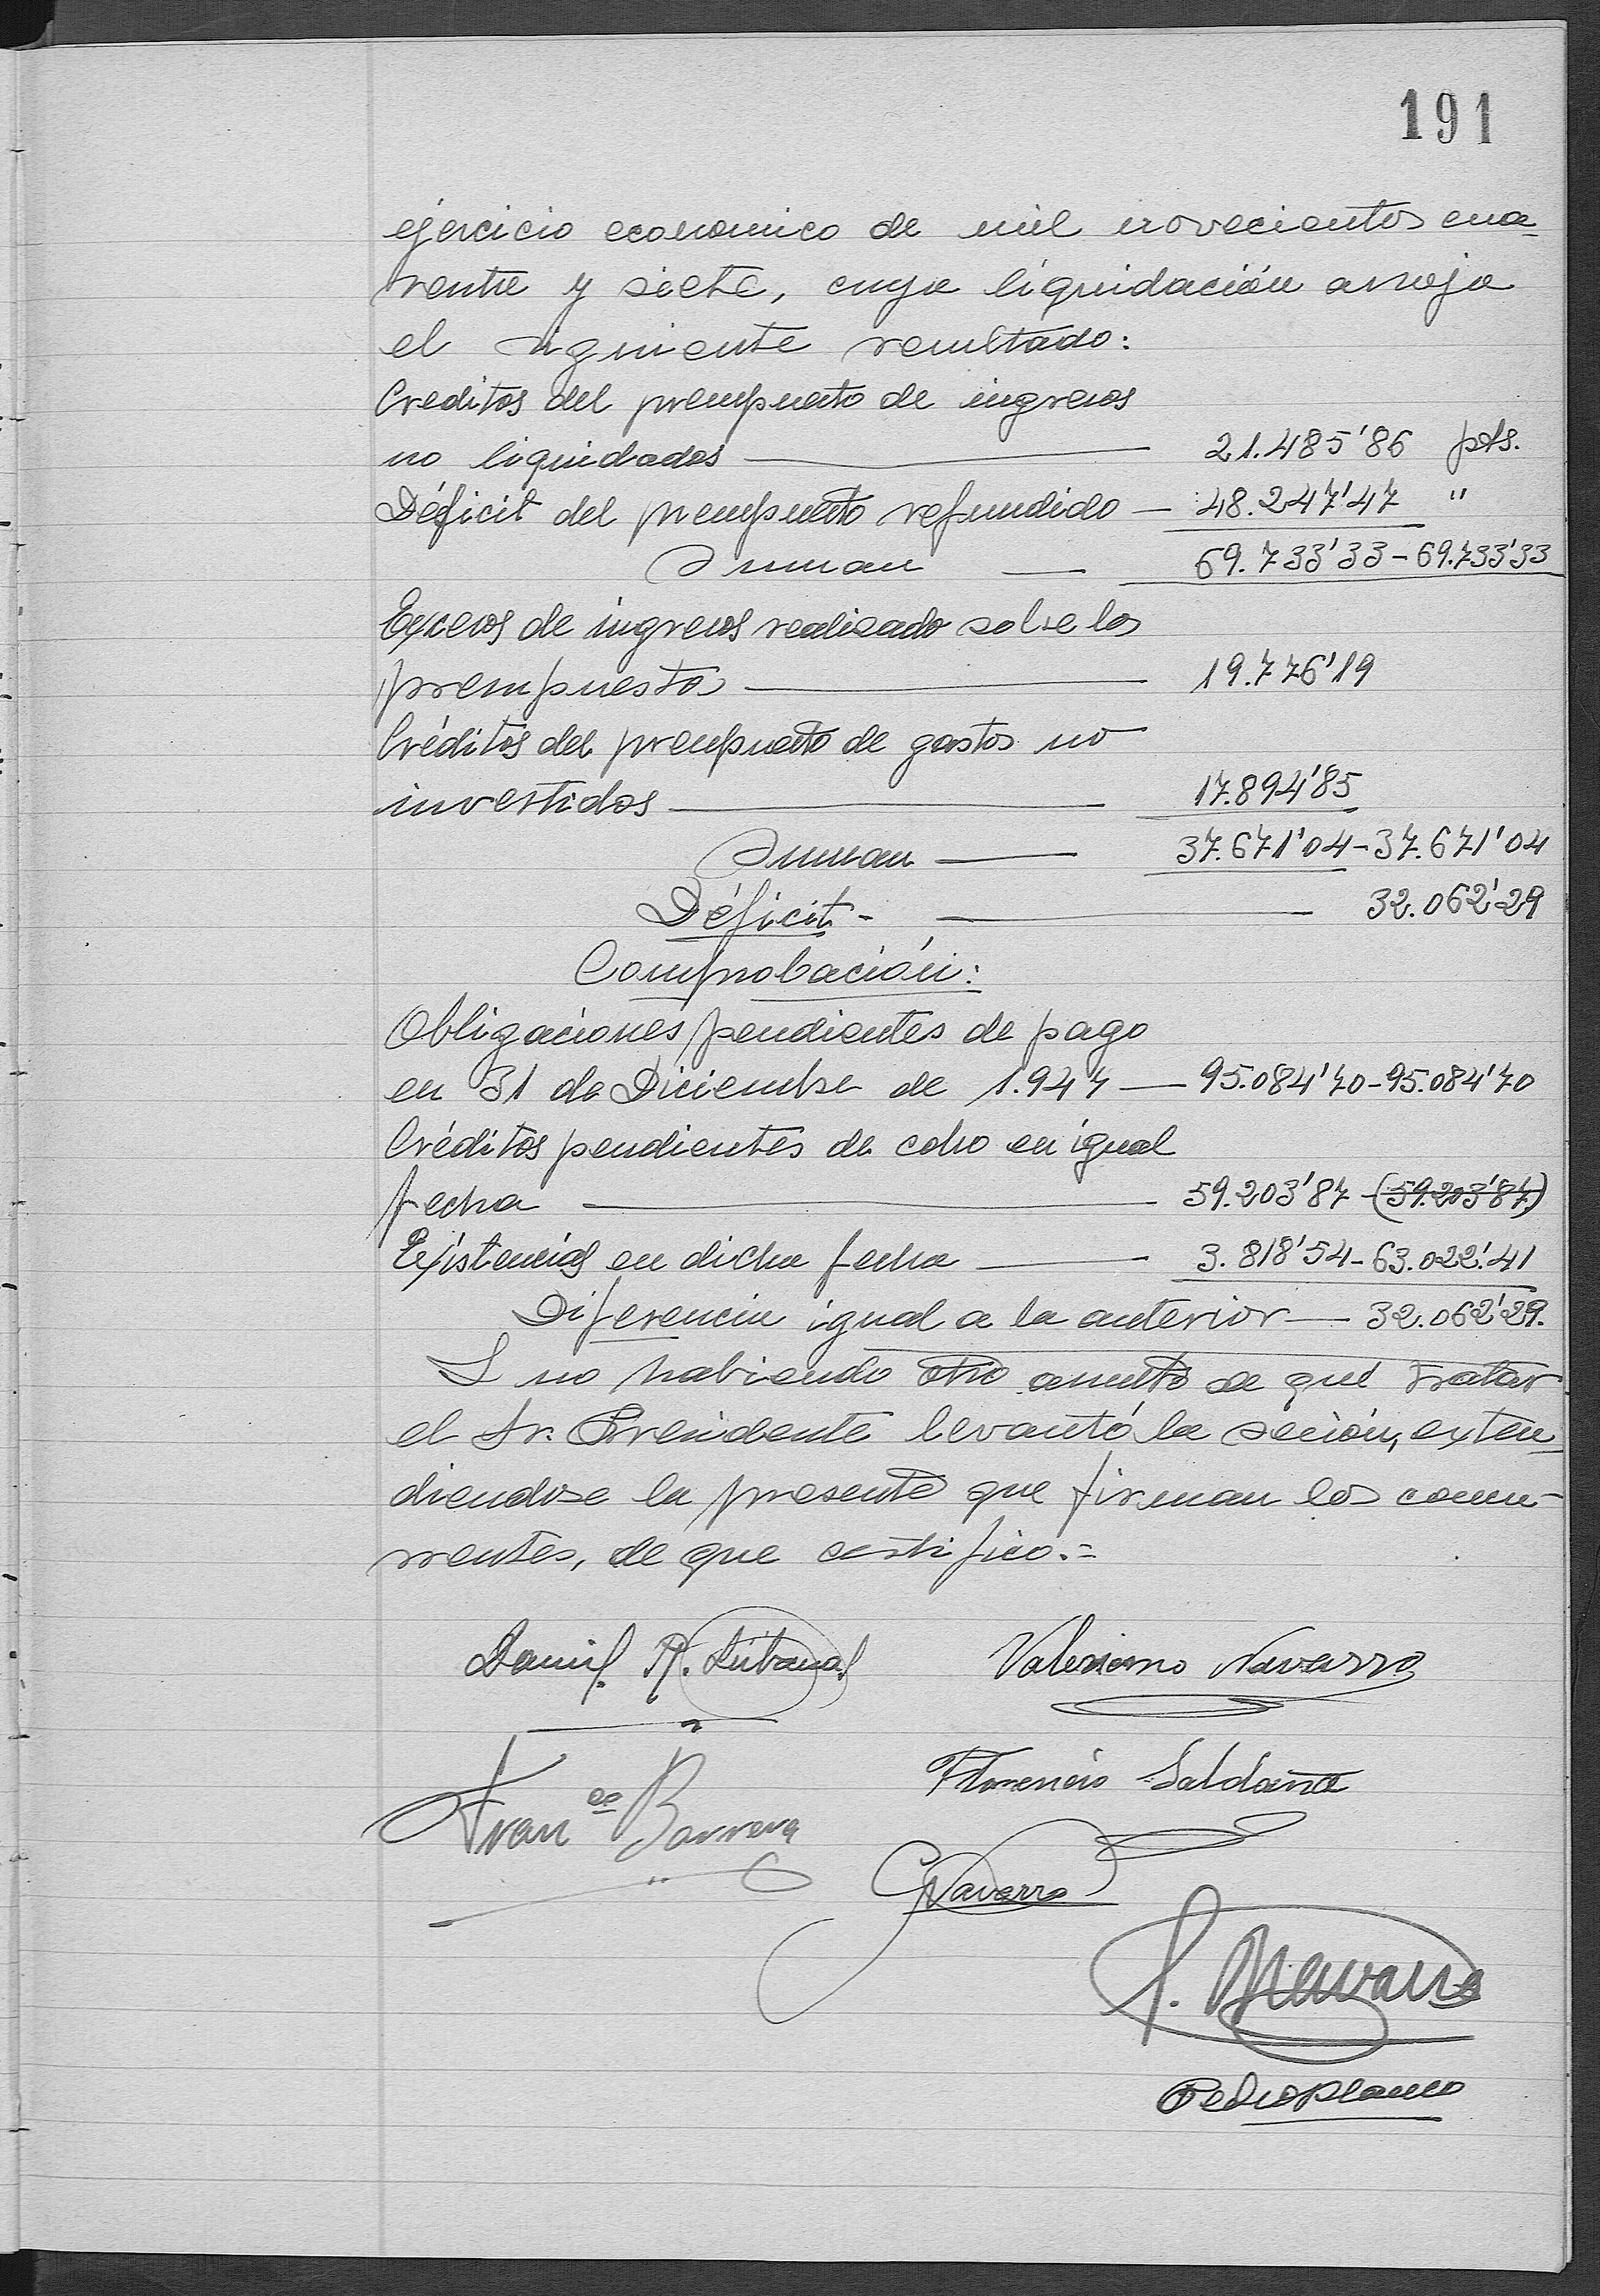 191
ejercicio economico de mil novecientos cua-
renta y siete, cuya liquidación arroja
el siguiente resultado:
Creditos del presupuesto de ingresos
no liquidados — 21.485'86 pts.
Déficit del presupuesto refundido — 48.247'47 "
Suman — 69.733'33 - 69.733'33
Excesos de ingresos realizado sobre los
presupuestos — 19.776'19
Créditos del presupuesto de gastos no
invertidos — 17.894'85
Suman — 37.671'04 - 37.671'04
Déficit - — 32.062'29
Comprobación:
Obligaciones pendientes de pago
en 31 de Diciembre de 1.947 — 95.084'70 - 95.084'70
Créditos pendientes de cobro en igual
fecha — 59.203'87 - (59.203'87)
Existencias en dicha fecha — 3.818'54 - 63.022'41
Diferencia igual a la anterior — 32.062'29.
Y no habiendo otro asunto de que tratar
el Sr. Presidente levantó la sesión, exten-
diendose la presente que firman los concu-
rrentes, de que certifico.=
Daniel R. Valeriano Navarro
Florencio Saldaña
Fran co Barrera
G Navarro
S. Navarro
Pedro Blanco